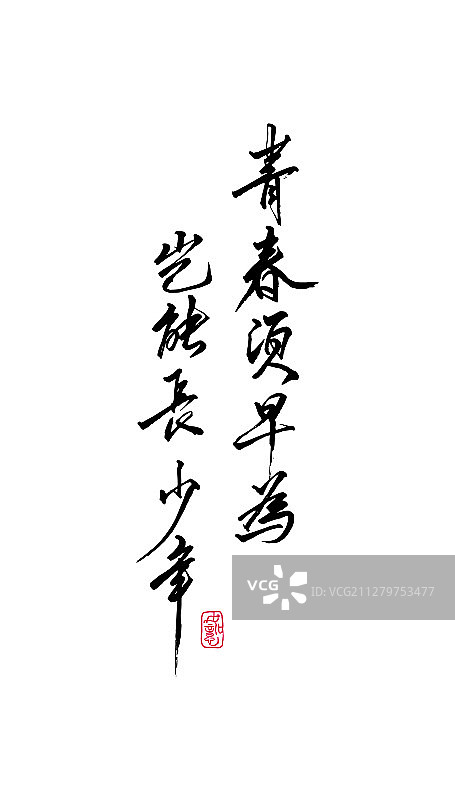 青春须早為
岂能長少年
VCG
ID:VCG211279753477